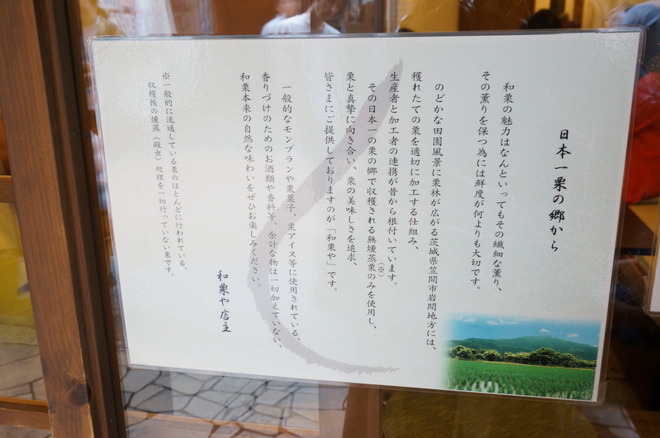 日本一栗の郷から
和栗の魅力はなんといってもその繊細な薫り、
その薫りを保つ為には鮮度が何よりも大切です。
のどかな田園風景に栗林が広がる茨城県笠間市岩間地方には、
穫れたての栗を適切に加工する仕組み、
生産者と加工者の連携が昔から根付いています。
その日本一の栗の郷で収穫される無燻蒸栗のみを使用し、
(※)
栗と真摯に向き合い、栗の美味しさを追求、
皆さまにご提供しておりますのが「和栗や」です。
一般的なモンブランや栗菓子、栗アイス等に使用されている、
香りづけのためのお酒類や香料等、余計な物は一切加えていない、
和栗本来の自然な味わいをぜひお楽しみください。
和栗や店主
※一般的に流通している栗のほとんどに行われている、
収穫後の燻蒸(殺虫)処理を一切行っていない栗です。